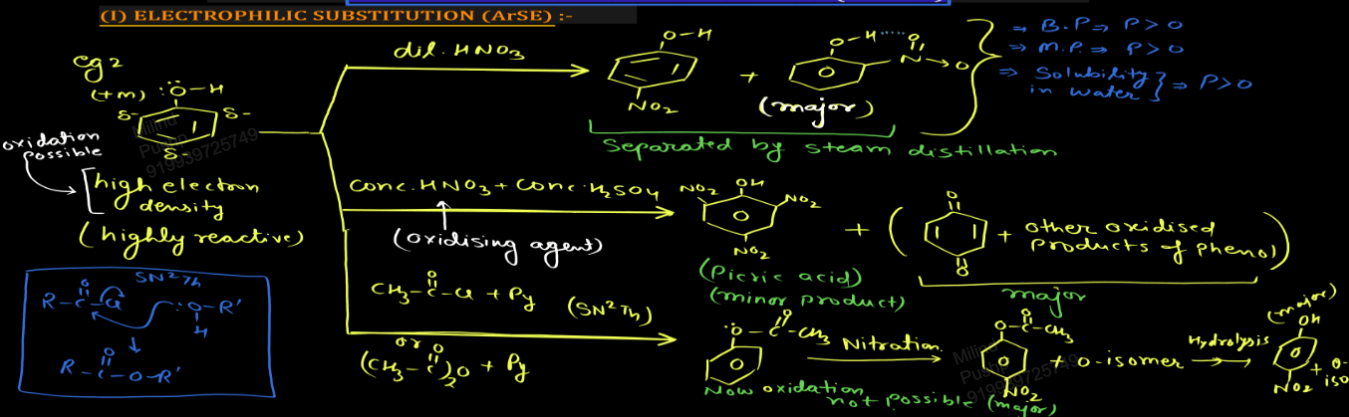 (I) ELECTROPHILIC SUBSTITUTION (ArSE) :-
eg 2
(+m) :Ö-H
δ- δ-
δ-
oxidation possible
[high electron density
(highly reactive)
dil. HNO3
O-H
NO2
+
O-H......O
N→O
(major)
Separated by steam distillation
⇒ B.P ⇒ P > O
⇒ M.P. ⇒ P > O
⇒ Solubility in water } ⇒ P > O
Conc. HNO3 + Conc. H2SO4
(oxidising agent)
NO2 OH NO2
NO2
(Picric acid)
(minor product)
+ ( O
O
+ other oxidised products of phenol)
major
CH3-C-Cl + Py (SN2Th)
O
or
(CH3-C)2O + Py
O
:O-C-CH3
O
Now oxidation not possible
Nitration
O-C-CH3
O
NO2
(major)
+ o-isomer
Hydrolysis
(major)
OH
NO2
+ o-
iso
SN2Th
R-C-Cl :O-R'
O H
↓
R-C-O-R'
O
Milind
Pushp
919939725749
Milind
Pushp
919939725749